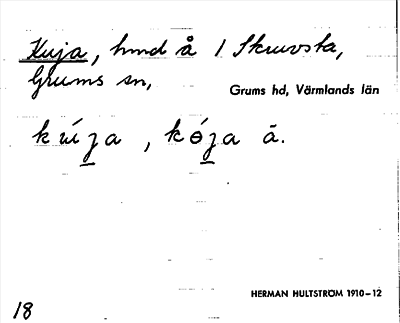 Kuja, hmd å 1 Skruvsta,
Grums sn,
Grums hd, Värmlands län
kúʒa, kóʒa ā.
HERMAN HULTSTRÖM 1910–12
18